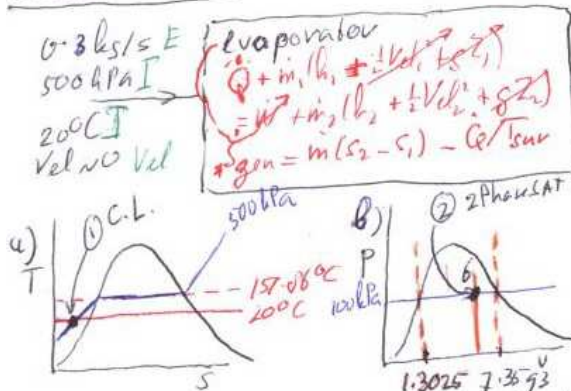 0.3 kg/s E
500 kPa I
20°C I
Vel ~ 0 Vel
evaporator
Q̇ + ṁ₁(h₁ + ½Vel₁² + gZ₁)
= Ẇ + ṁ₂(h₂ + ½Vel₂² + gZ₂)
gen = ṁ(s₂ - s₁) - Q̇/Tsur
a)
① C.L.
500 kPa
T
151.86°C
20°C
s
b)
② 2 Phase SAT
P
100 kPa
6
v
1.3025
7.3593